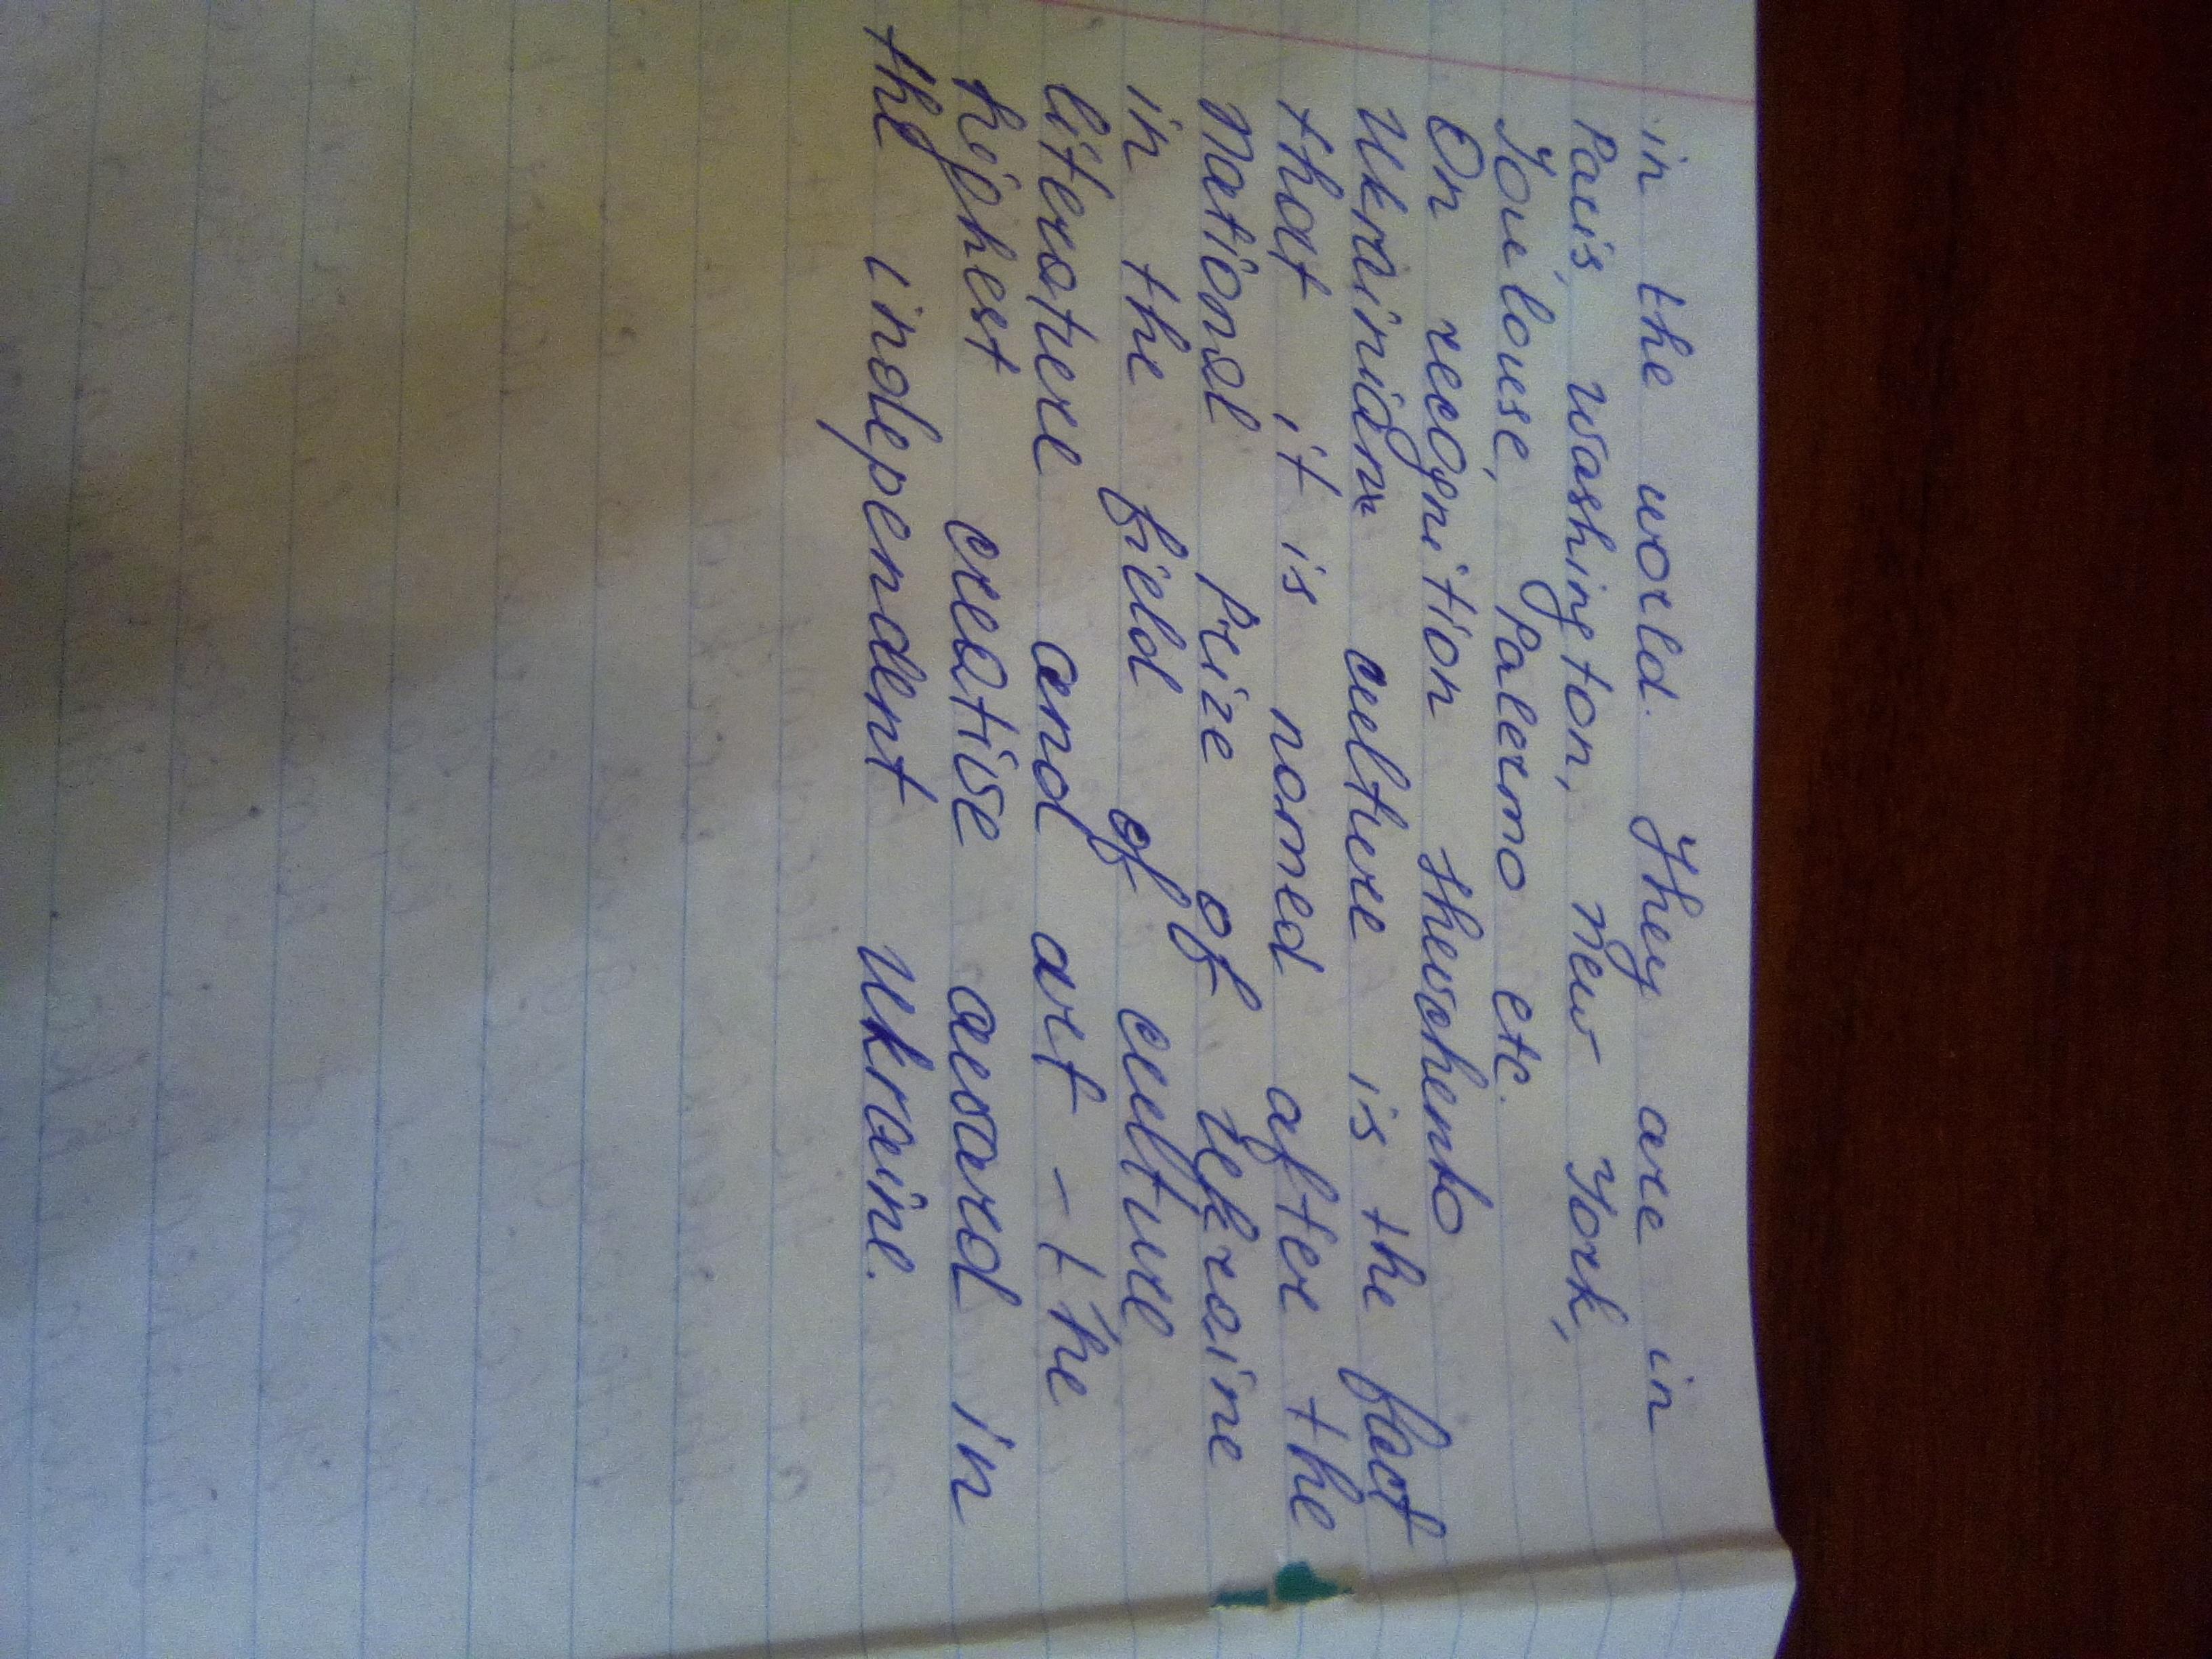 in the world. They are in
Paris, Washington, New York,
Toulouse, Palermo etc.
On recognition Shevchenko
Ukrainian culture is the fact
that it is named after the
national Prize of Ukraine
in the field of culture
literature and art - the
highest creative award in
the independent Ukraine.